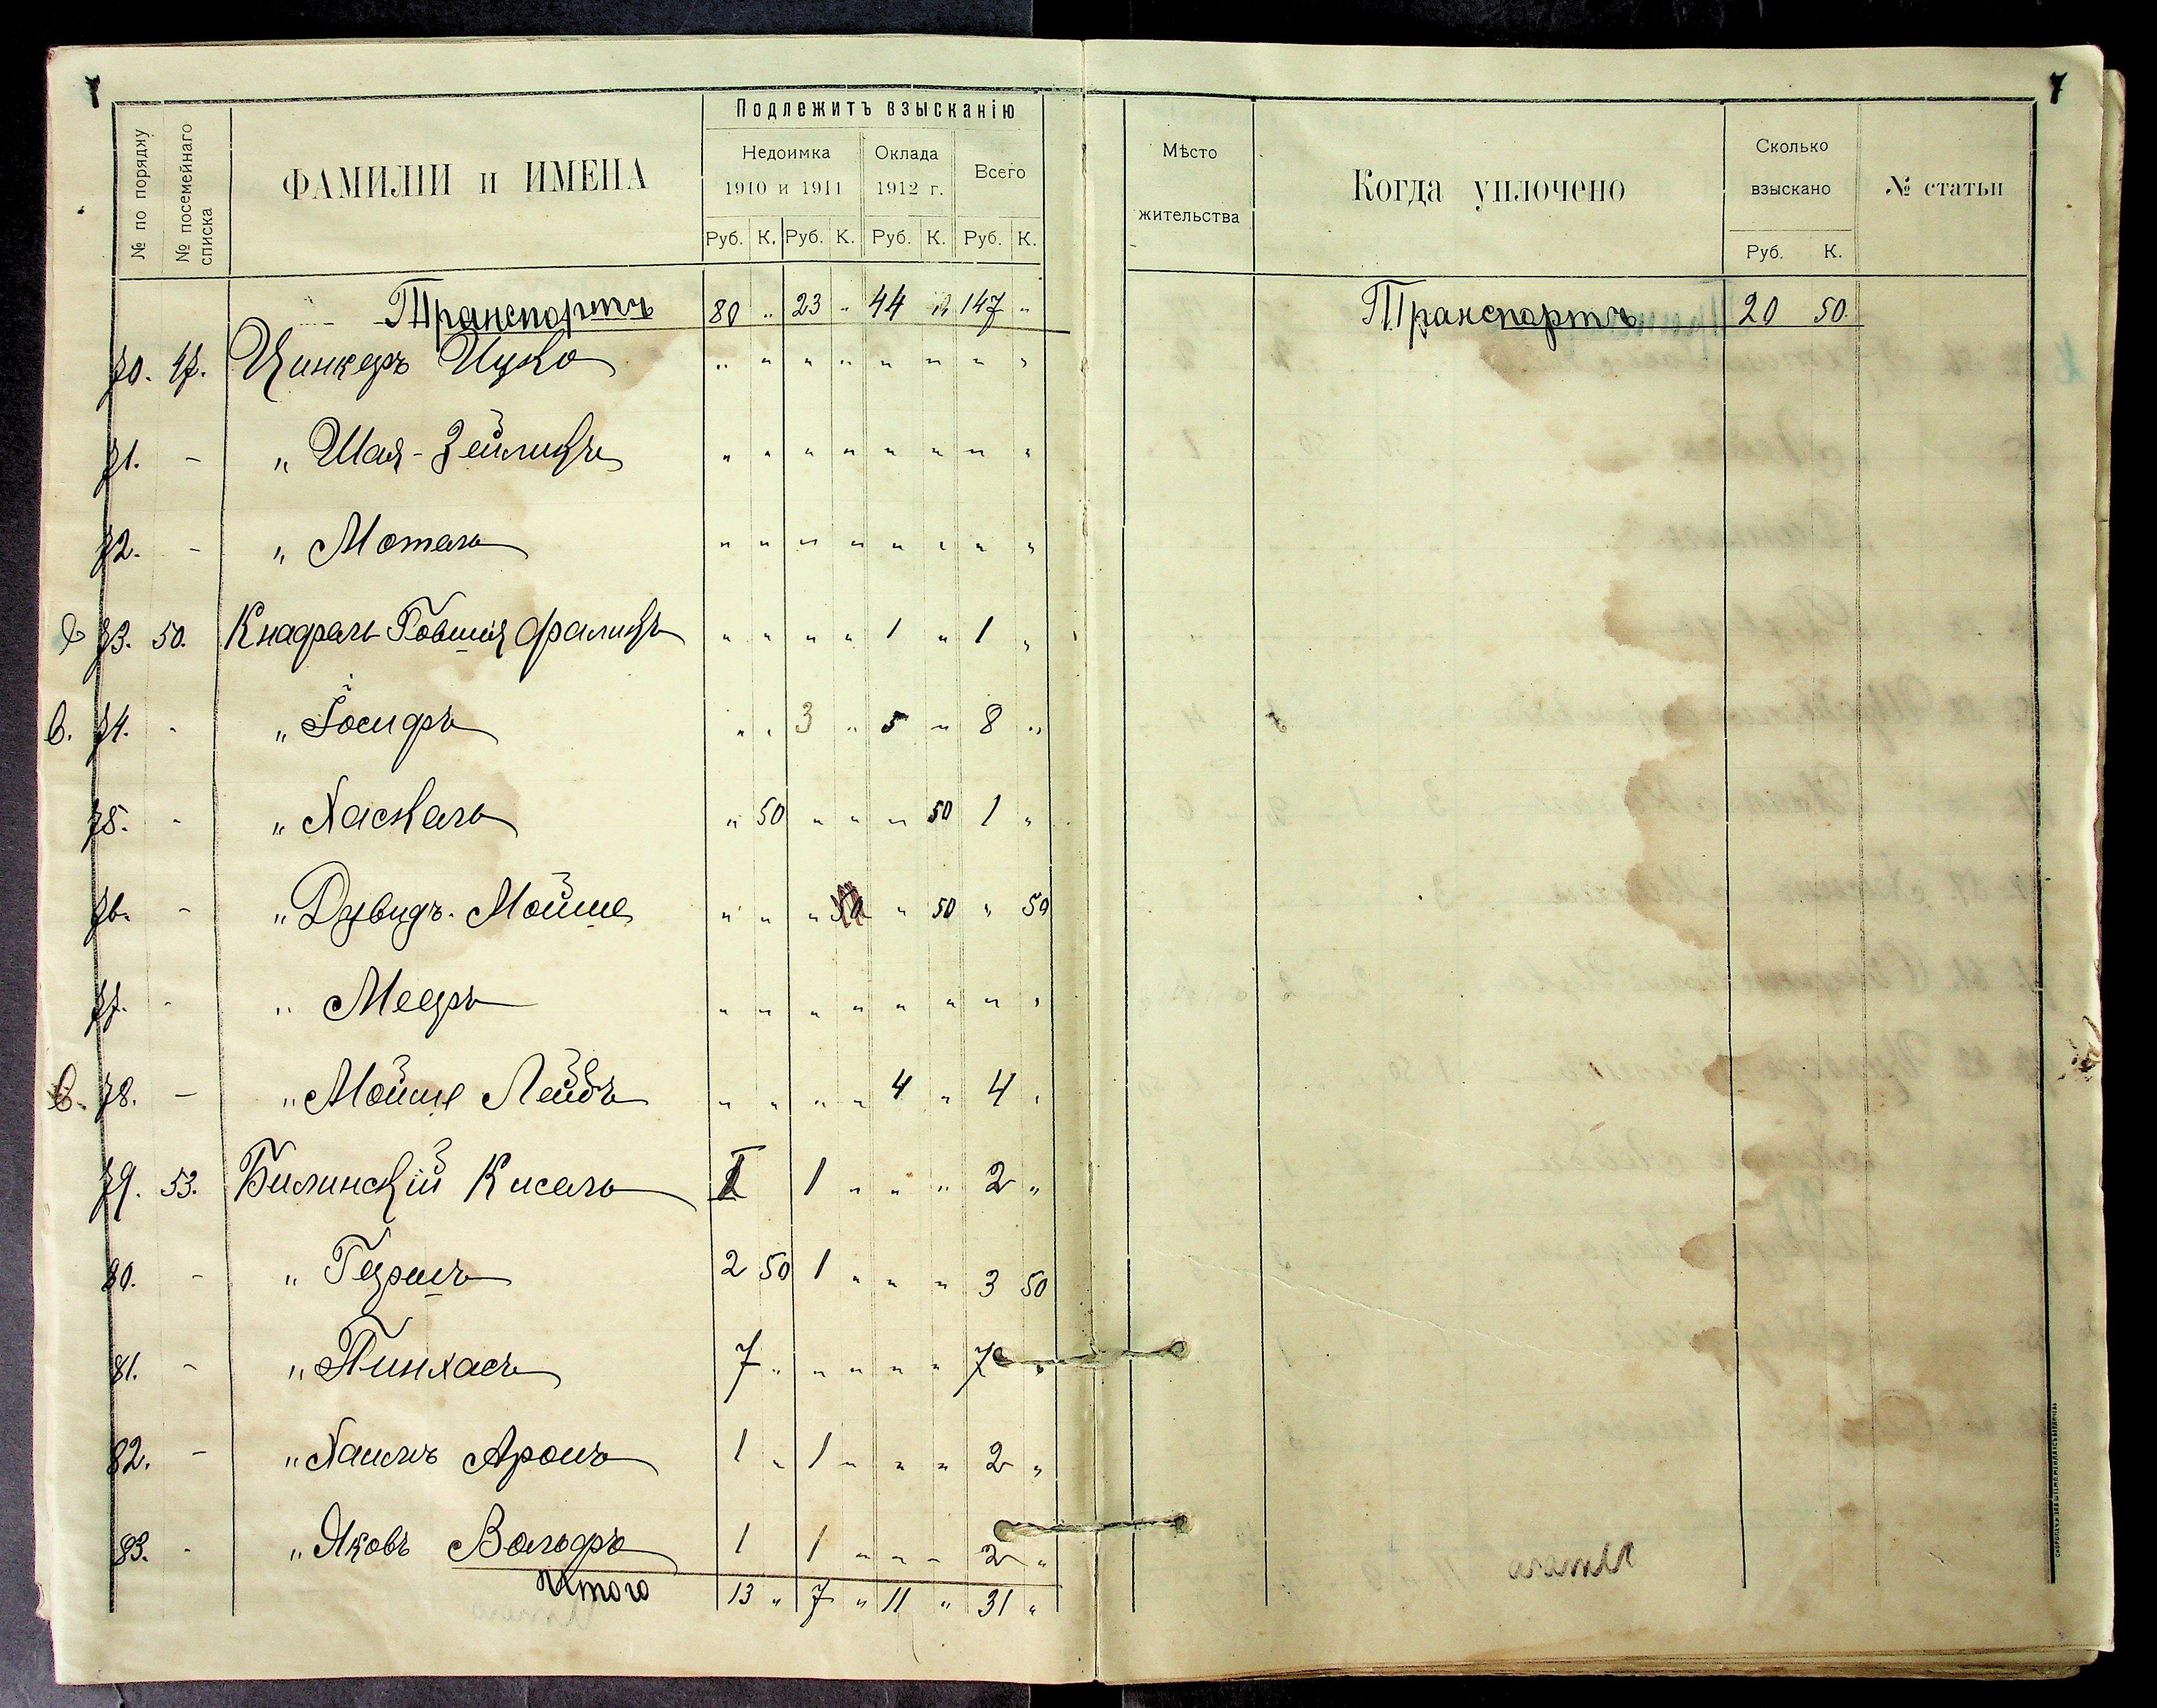 7
7
Подлежитъ взысканію
№ по порядку
№ посемейнаго списка
ФАМИЛІИ и ИМЕНА
Недоимка 1910 и 1911
Оклада 1912 г.
Всего
Руб. К. Руб. К. Руб. К. Руб. К.
Мѣсто жительства
Когда уплочено
Сколько взыскано
Руб. К.
№ статьи
Транспортъ 80 " 23 " 44 " 147 "
Транспортъ 20 50.
70. 47. Цинкеръ Ицко " " " " " " " "
71. - " Шая-Зейликъ " " " " " " " "
72. - " Мотель " " " " " " " "
73. 50. Кнафель Говшія Фаликъ " " " " 1 " 1 "
в. 74. - " Іосифъ " " 3 " 5 " 8 "
75. - " Хаскель " 50 " " " 50 1 "
76. - " Дувидъ-Мойше " " " 50 " 50 " 50
77. - " Мееръ " " " " " " " "
в. 78. - " Мойше Лейбъ " " " " 4 " 4 "
79. 53. Билинскій Кисель 1 1 " " " 2 "
80. - " Гершъ 2 50 1 " " " 3 50
81. - " Пинхасъ 7 " " " " " 7 "
82. - " Хаимъ Аронъ 1 " 1 " " " 2 "
83. - " Яковъ Вольфъ 1 1 " " " 2 "
Итого 13 " 7 " 11 " 31 "